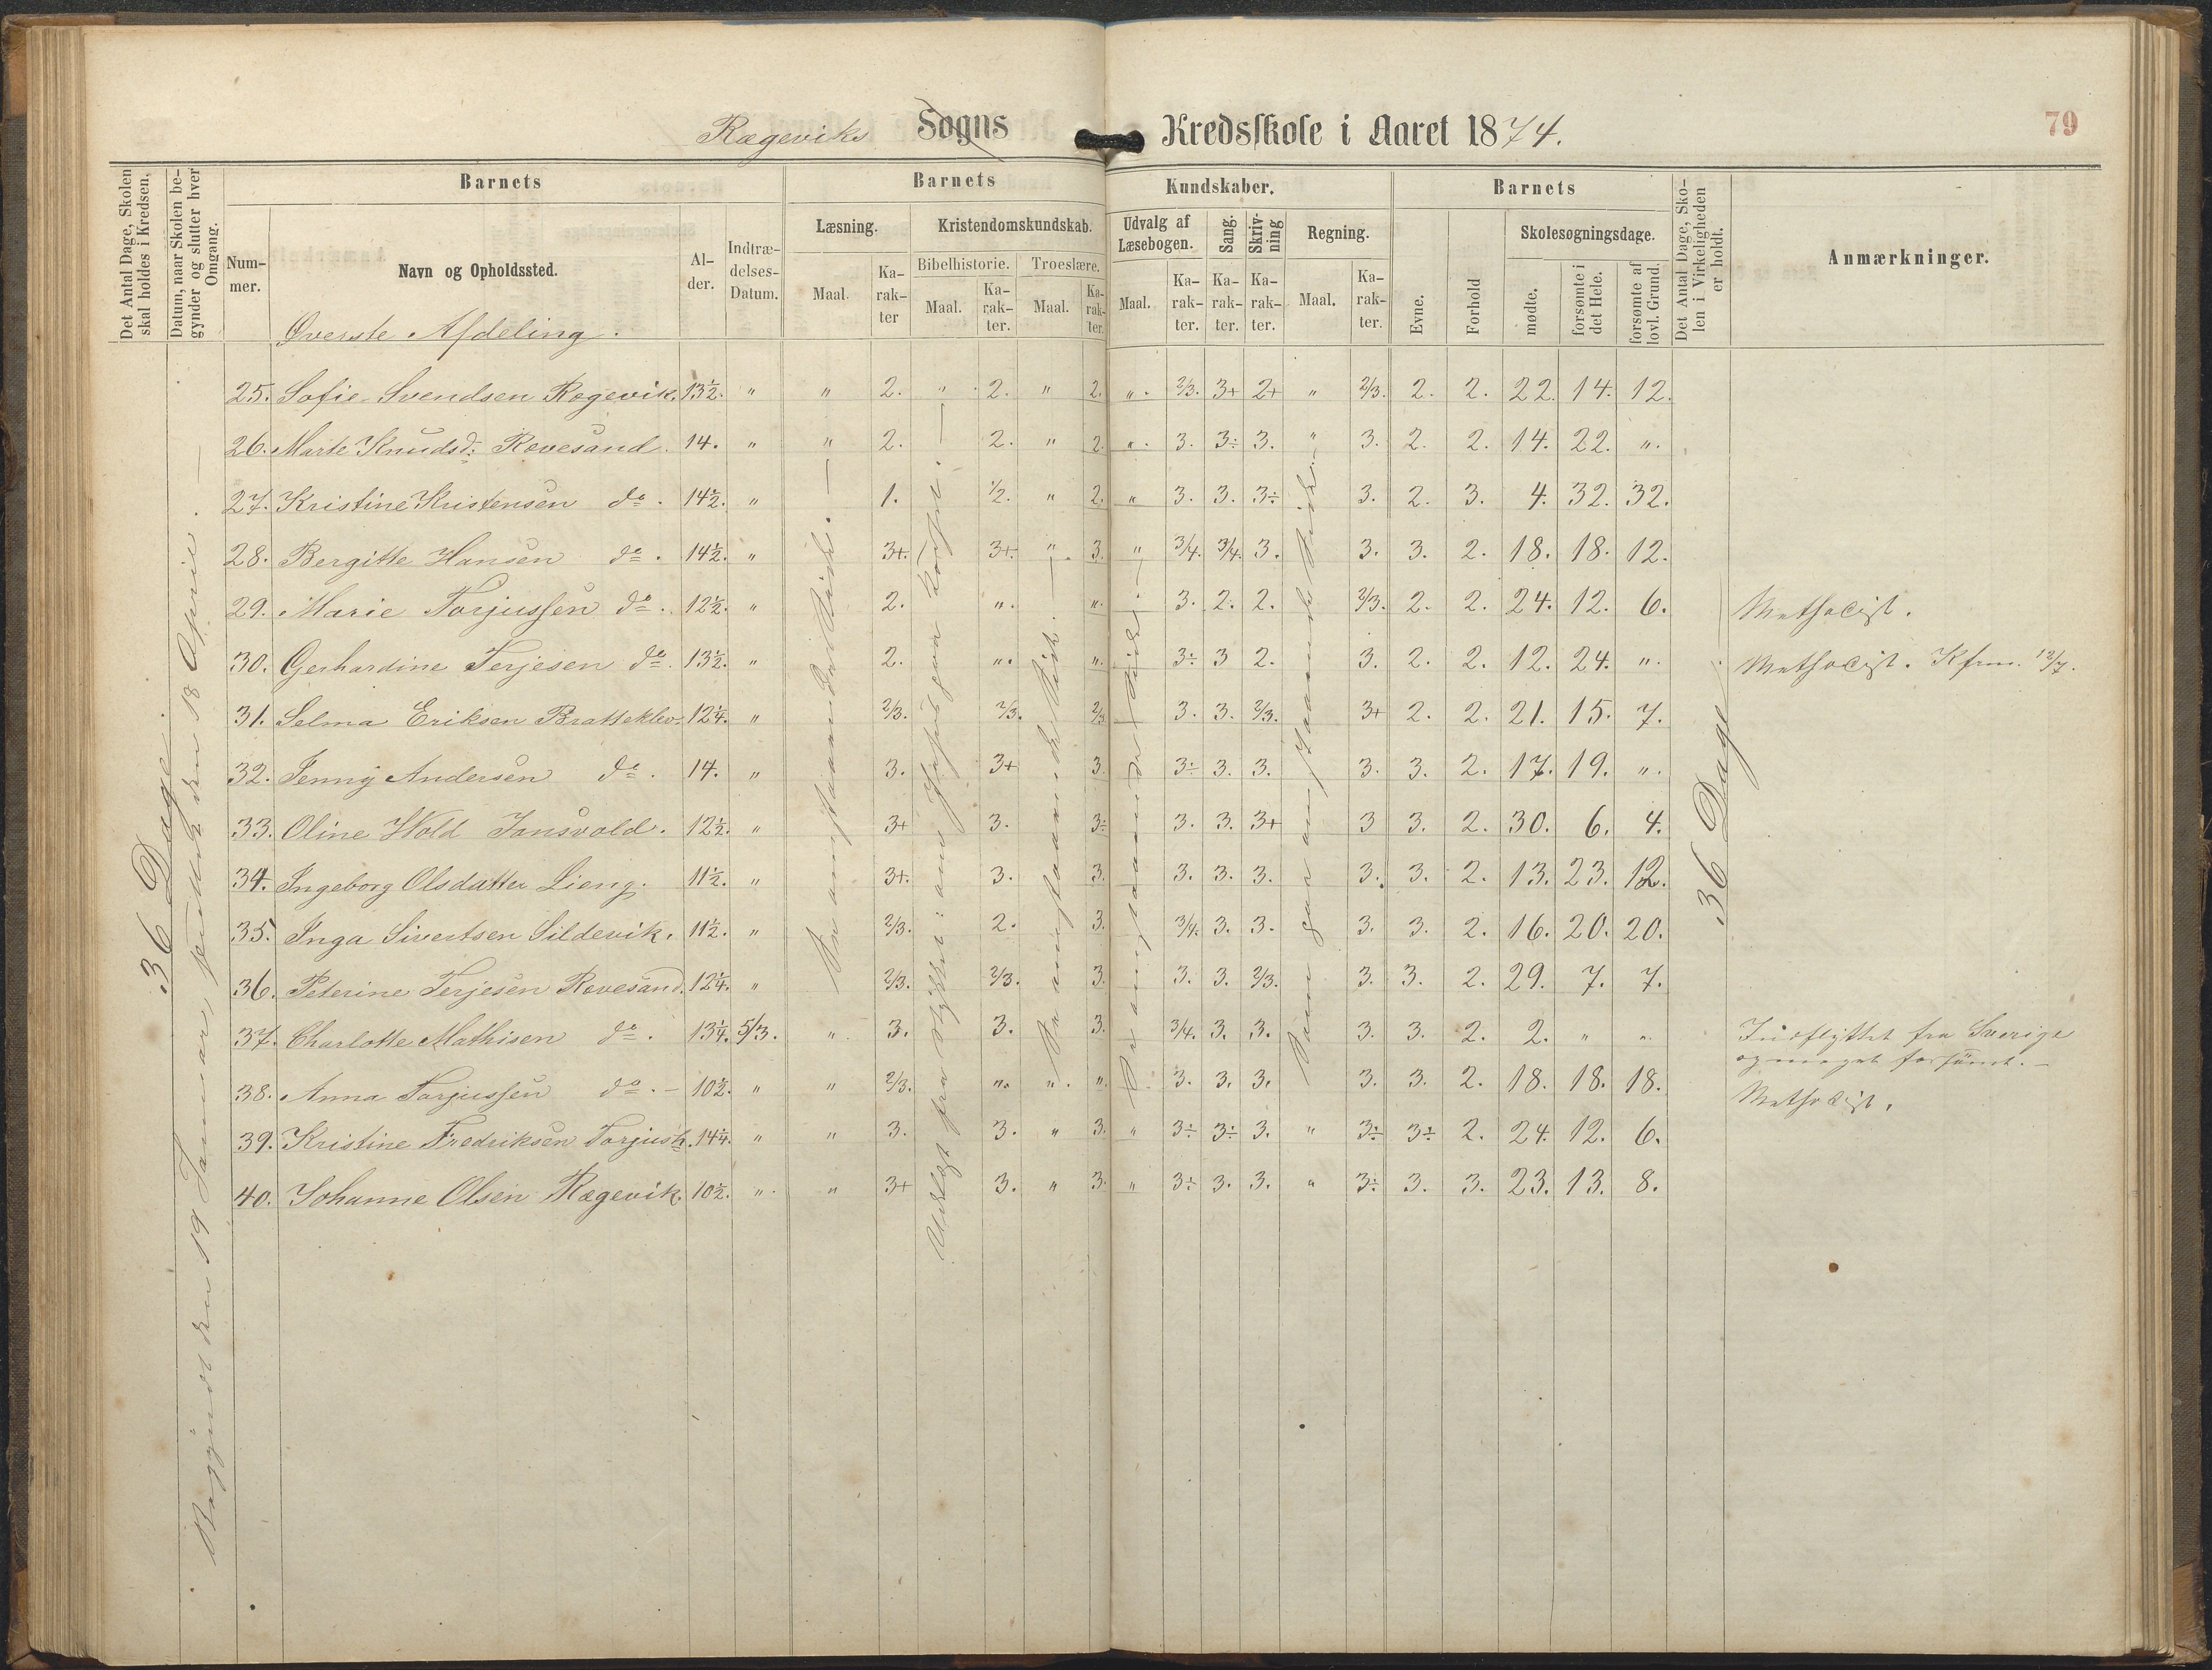 Rægeviks Sogns Kredsskole i Aaret 1874.
79
Det Antal Dage, Skolen skal holdes i Kredsen.
Datum, naar Skolen begynder og slutter hver Omgang.
Barnets
Barnets
Kundskaber.
Barnets
Det Antal Dage, Skolen i Virkeligheden er holdt.
Anmærkninger.
Nummer.
Navn og Opholdssted.
Alder.
Indtrædelses-Datum.
Læsning.
Kristendomskundskab.
Udvalg af Læsebogen.
Sang.
Skrivning
Regning.
Evne.
Forhold
Skolesøgningsdage.
Bibelhistorie.
Troeslære.
Maal.
Karakter
Maal.
Karakter.
Maal.
Karakter.
Maal.
Karakter.
Karakter.
Karakter.
Maal.
Karakter.
mødte.
forsømte i det Hele.
forsømte af lovl. Grund.
Øverste Afdeling.
25. Sofie Svendsen Rægevik. 13½. " " 2. " 2. " 2. ". 2/3. 3+ 2+ " 2/3. 2. 2. 22. 14. 12.
26. Marte Knudsd: Rævesand. 14. " " 2. 2. " 2. ". 3. 3÷ 3. " 3. 2. 2. 14. 22. ".
27. Kristine Kristensen do. 14½. " 1. ½. " 2. " 3. 3. 3÷ 3. 2. 3. 4. 32. 32.
28. Bergitte Hansen do. 14½. " 3+. 3+. " 3. " 3/4. 3/4. 3. 3. 3. 2. 18. 18. 12.
29. Marie Torjussen do. 12½. " 2. ". ". 3. 2. 2. 2/3. 2. 2. 24. 12. 6. Methodist.
30. Gerhardine Terjesen do. 13½. " 2. ". ". 3÷ 3 2. 3. 2. 2. 12. 24. ". Methodist. Kfrm. 12/7.
31. Selma Eriksen Bratteklev. 12¼. " 2/3. 2/3. 2/3 3. 3. 2/3. 3+ 2. 2. 21. 15. 7.
32. Jenny Andersen do. 14. " 3. 3+ 3. 3÷ 3. 3. 3. 3. 2. 17. 19. ".
33. Oline Wold Jansvold. 12½. " 3+ 3. 3÷ 3. 3. 3+ 3 3. 2. 30. 6. 4.
34. Ingeborg Olsdatter Lieng. 11½. " 3+. 3. 3. 3. 3. 3. 3. 3. 2. 13. 23. 12.
35. Inga Sivertsen Sildevik. 11½. " 2/3. 2. 3. 3/4. 3. 3. 3. 3. 2. 16. 20. 20.
36. Peterine Terjesen Rævesand. 12¼. " 2/3. 2/3. 3. 3. 3. 2/3. 3. 3. 2. 29. 7. 7.
37. Charlotte Mathisen do. 13¼. 5/3. " 3. 3. 3. 3/4. 3. 3. 3. 3. 2. 2. " ". Indflyttet fra Sverige
og meget forsømt. –
38. Anna Torjussen do. – 10½. " " 2/3. ". ". ". 3. 3. 3. 3. 3. 2. 18. 18. 18. Methodist.
39. Kristine Fredriksen Torjush. 14¼. " " 3. 3. " 3. " 3÷ 3÷ 3. " 3÷ 3÷ 2. 24. 12. 6.
40. Johanne Olsen Rægevik. 10½. ". " 3+ 3. " 3. " 3÷ 3. 3. " 3÷ 3. 3. 23. 13. 8.
36 Dage.
Begyndt den 19 Januar, sluttet den 18 April.
36 Dage